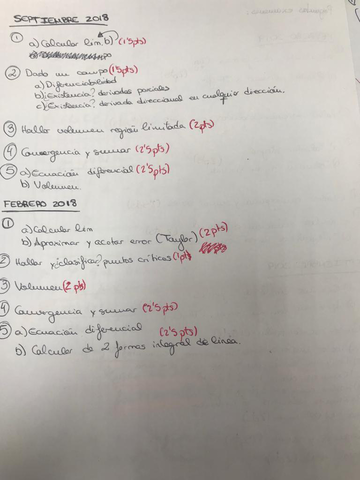 SEPTIEMBRE 2018
① a) Calcular lim b) (1'5pts)
② Dado un campo (1'5pts)
a) Diferenciabilidad
b) Existencia? derivadas parciales
c) Existencia? derivada direccional en cualquier dirección.
③ Hallar volumen región limitada (2pts)
④ Convergencia y sumar (2'5pts)
⑤ a) Ecuación diferencial (2'5pts)
b) Volumen.
FEBRERO 2018
① a) Calcular lim
b) Aproximar y acotar error (Taylor) (2pts)
② Hallar y¿clasificar? puntos críticos (1pt)
③ Volumen (2pts)
④ Convergencia y sumar (2'5pts)
⑤ a) Ecuación diferencial (2'5pts)
b) Calcular de 2 formas integral de línea.